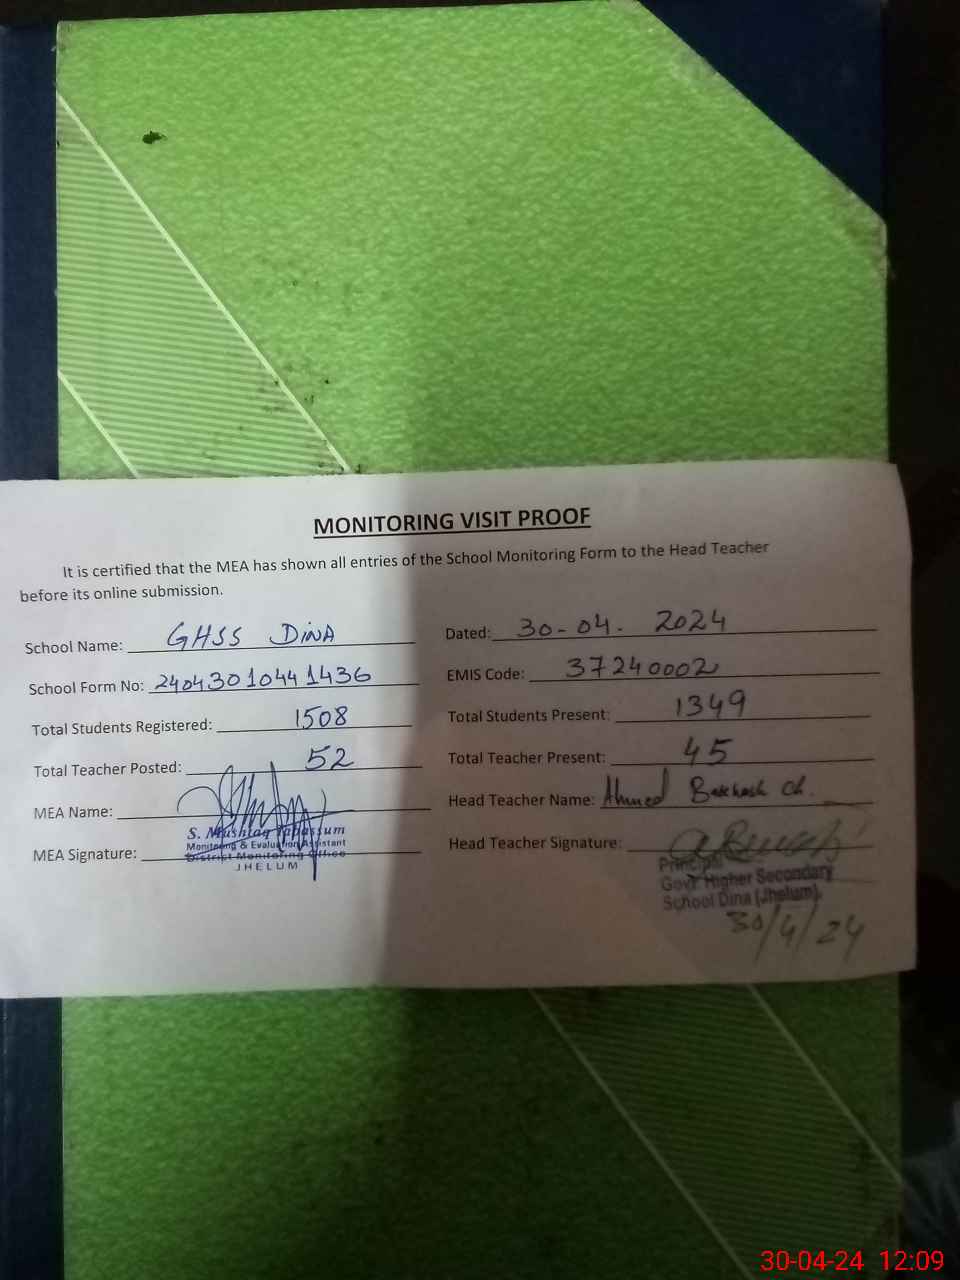 MONITORING VISIT PROOF
It is certified that the MEA has shown all entries of the School Monitoring Form to the Head Teacher
before its online submission.
School Name: GHSS DINA
Dated: 30-04-2024
School Form No: 24043010441436
EMIS Code: 37240002
Total Students Registered: 1508
Total Students Present: 1349
Total Teacher Posted: 52
Total Teacher Present: 45
MEA Name:
Head Teacher Name: Ahmed Ch.
S. Mushtaq Tabassum
Monitoring & Evaluation Assistant
District Monitoring Office
JHELUM
MEA Signature:
Head Teacher Signature:
Principal
Govt Higher Secondary
School Dina (Jhelum)
30/4/24
30-04-24 12:09